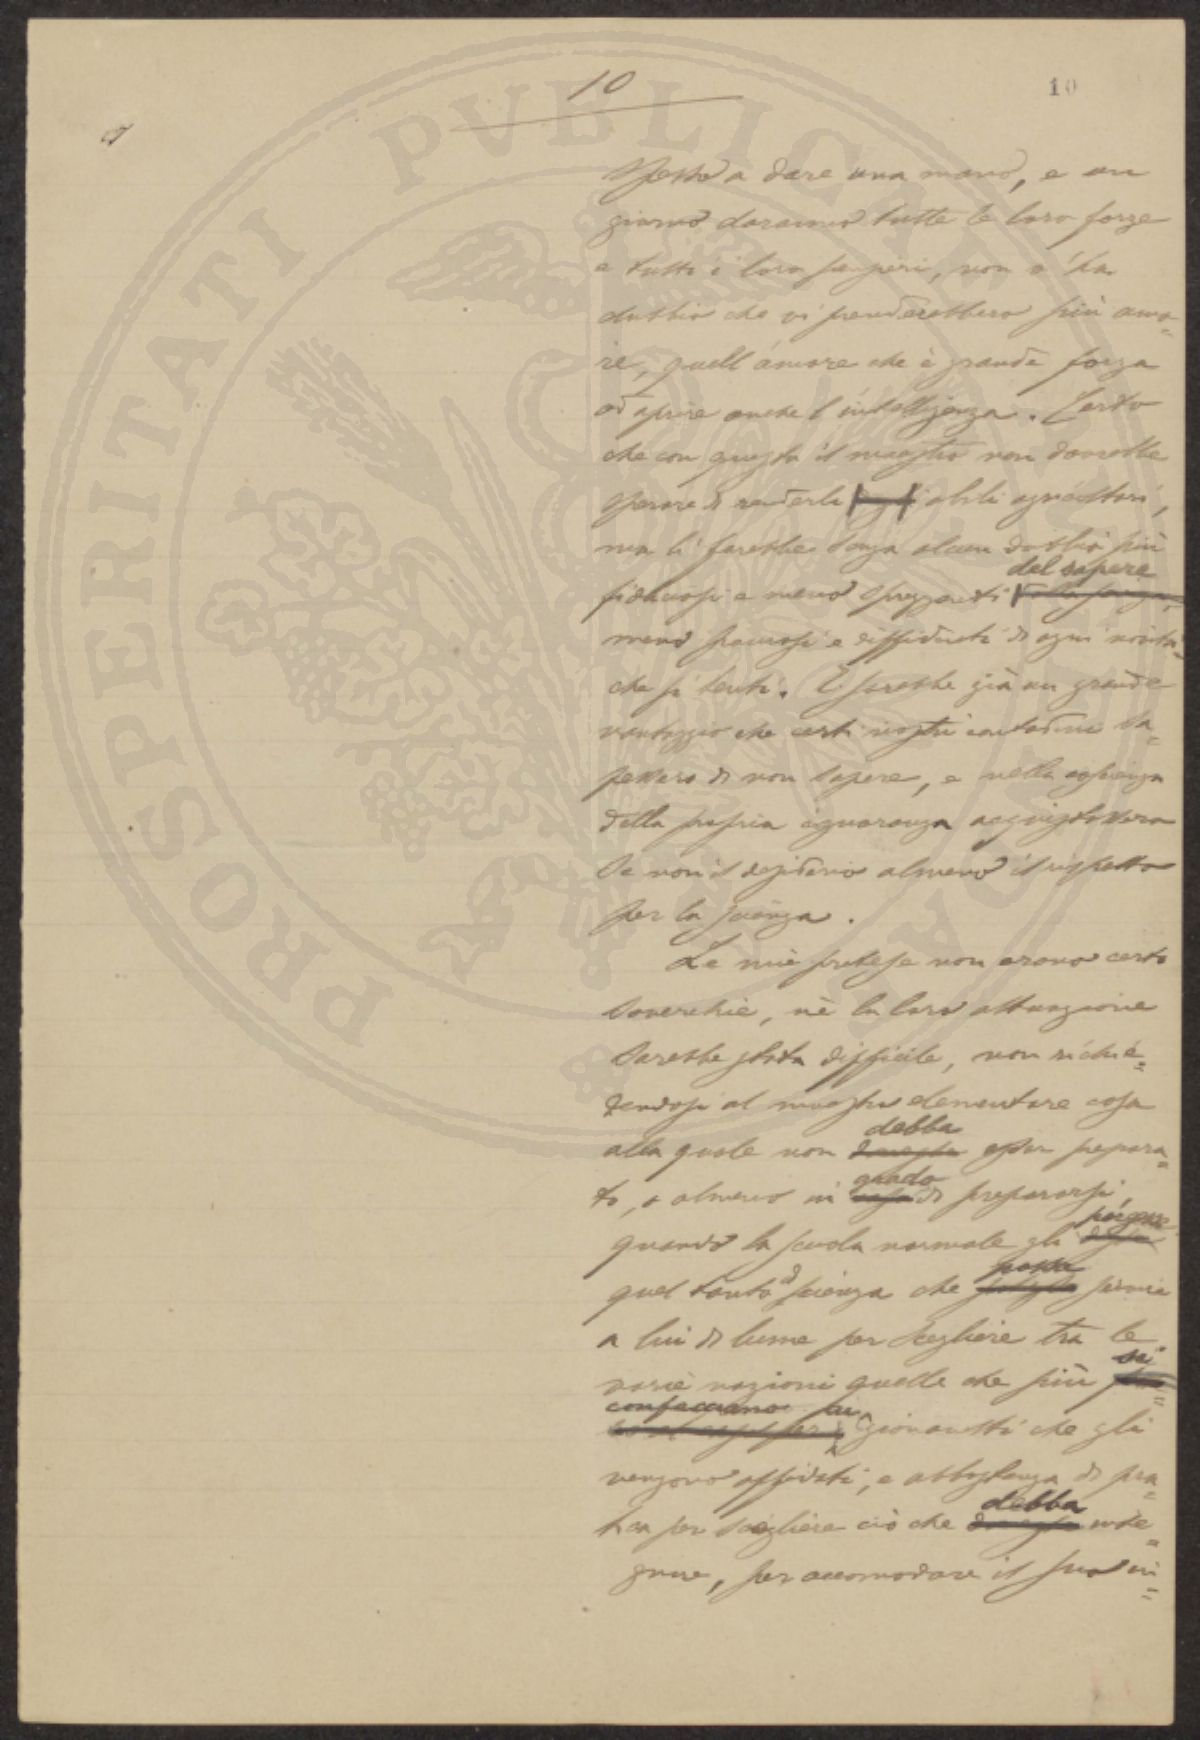 10
10
PROSPERITATI PVBLICAE
spesso a dare una mano, e un
giorno daranno tutte le loro forze
e tutti i loro pensieri, non v'ha
dubbio che vi prenderebbero più amo=
re, quell'amore che è grande forza
ad aprire anche l'intelligenza. Certo
che con questo il maestro non dovrebbe
sperare di renderli abili agricoltori,
ma li farebbe senza alcun dubbio più
del sapere
fiduciosi e meno sprezzanti
meno paurosi e diffidenti di ogni novità
che si tenti. E sarebbe già un grande
vantaggio che certi nostri contadini sa=
pessero di non sapere, e nella coscienza
della propria ignoranza acquistassero
se non il desiderio almeno il rispetto
per la scienza.
Le mie pretese non erano certo
soverchie, nè la loro attuazione
sarebbe stata difficile, non richie=
dendosi al maestro elementare cosa
debba
alla quale non dovesse esser prepara=
grado
to, o almeno in caso di prepararsi,
porgesse
quando la scuola normale gli
possa
quel tanto di scienza che potesse servire
a lui di lume per scegliere tra le
si
varie nozioni quelle che più
confacciano ai
giovanetti che gli
vengono affidati, e abbastanza di pra=
debba
tica per scegliere ciò che dovesse inse=
gnare, per accomodare il suo in=